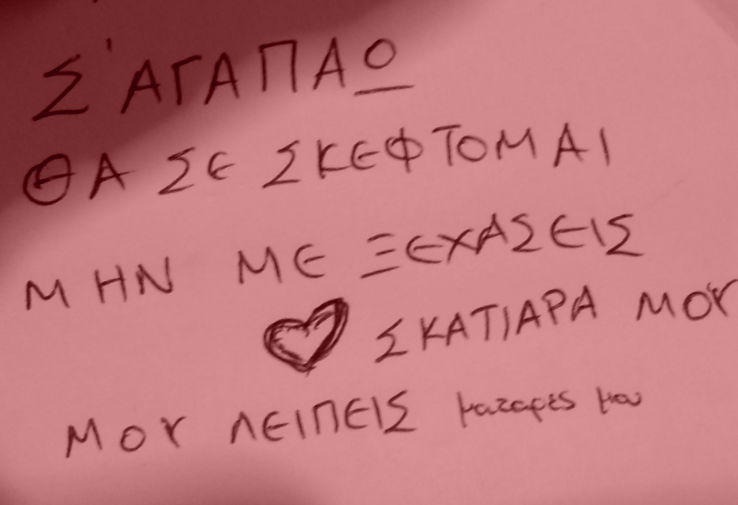 Σ'ΑΓΑΠΑΩ
ΘΑ ΣΕ ΣΚΕΦΤΟΜΑΙ
ΜΗΝ ΜΕ ΞΕΧΑΣΕΙΣ
ΣΚΑΤΙΑΡΑ ΜΟΥ
ΜΟΥ ΛΕΙΠΕΙΣ μου